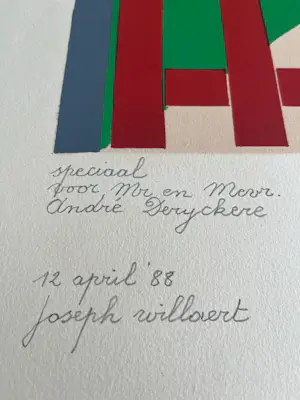 speciaal
voor Mr en Mevr.
André Deryckere
12 april '88
Joseph Willaert